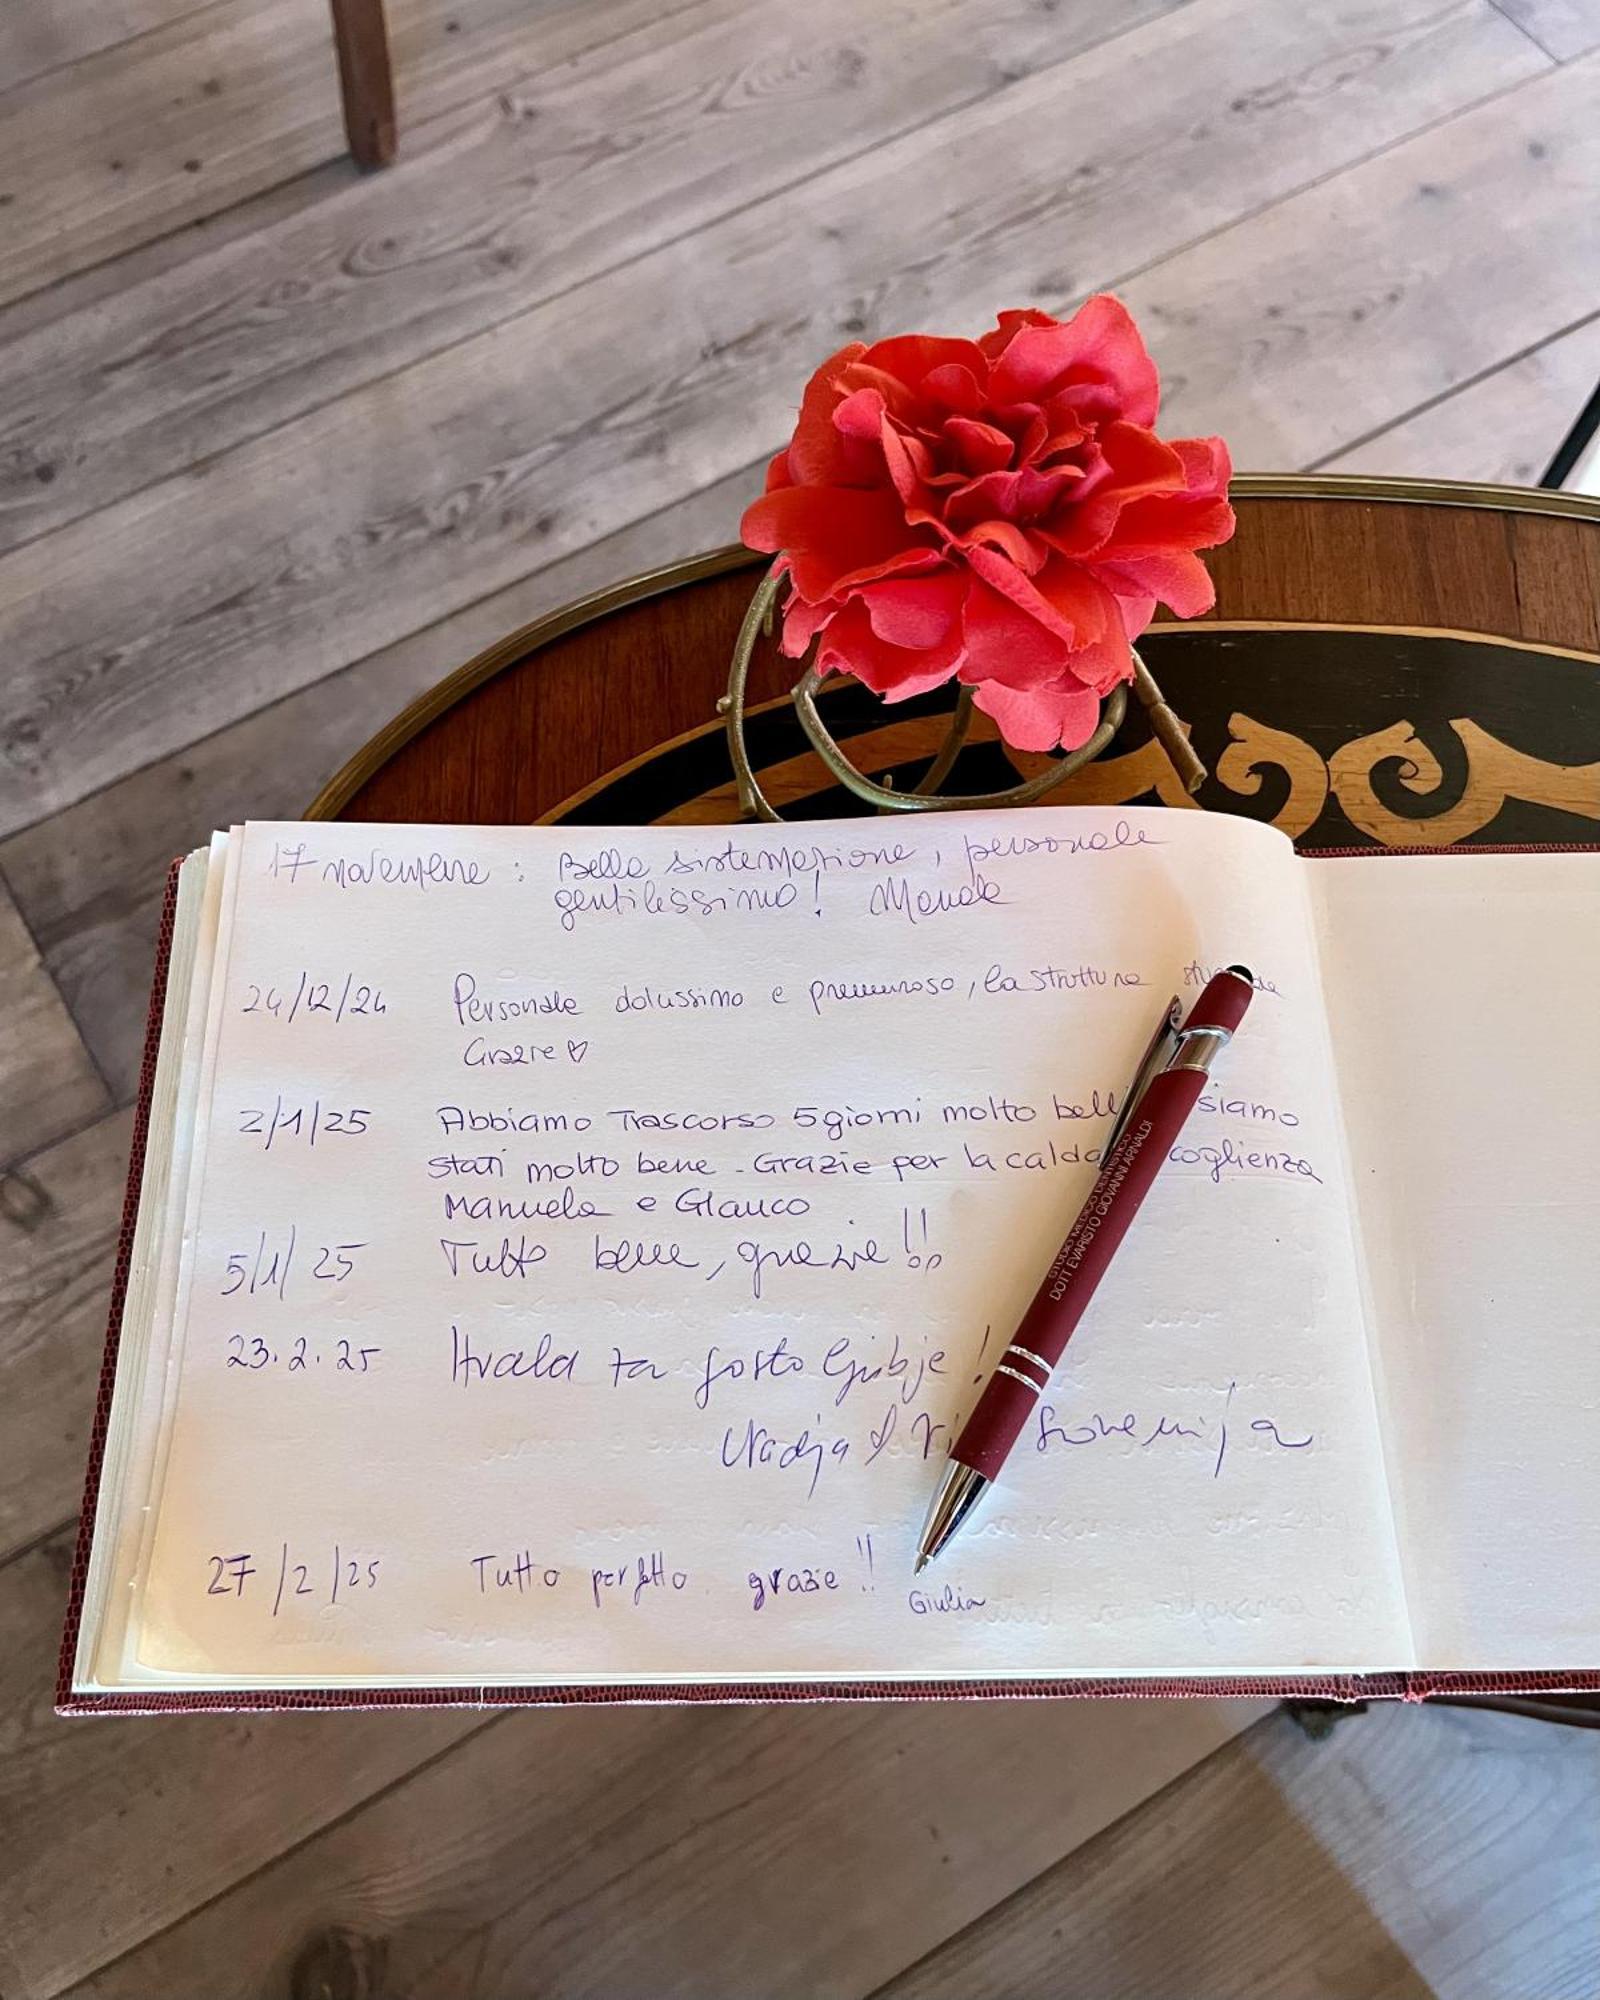 17 novembre : Bella sistemazione, personale
gentilissimo!
24/12/24 Personale dolcissimo e premuroso, la struttura
Grazie ♡
2/1/25 Abbiamo Trascorso 5 giorni molto belli siamo
stati molto bene - Grazie per la calda coglienza
Manuela e Glauco
5/1/25 Tutto bene, grazie!!
23.2.25 Hvala za gosto ljubje!
Nadja &
27/2/25 Tutto perfetto grazie!!
Giulia
STUDIO MEDICO DENTISTICO
DOTT EVARISTO GIOVANNI ARNALDI